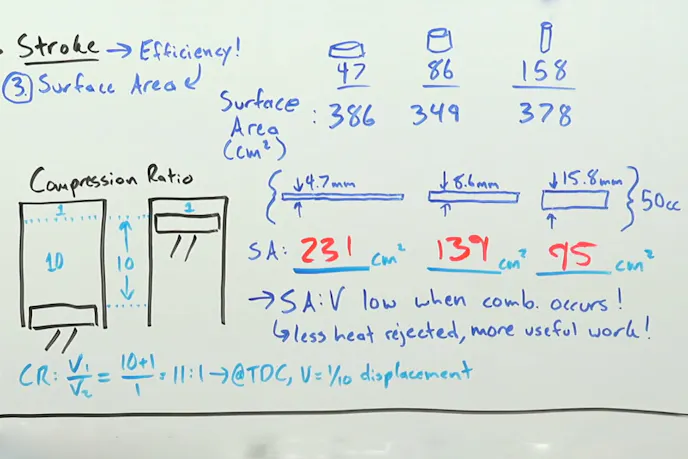 • Stroke → Efficiency!
③. Surface Area
47 86 158
Surface Area (cm²) : 386 349 378
Compression Ratio
1 1
10 10
4.7mm 8.6mm 15.8mm
50cc
SA: 231 cm² 139 cm² 95 cm²
→ SA:V low when comb. occurs!
↳ less heat rejected, more useful work!
CR: V₁/V₂ = 10+1/1 = 11:1 → @TDC, V = 1/10 displacement